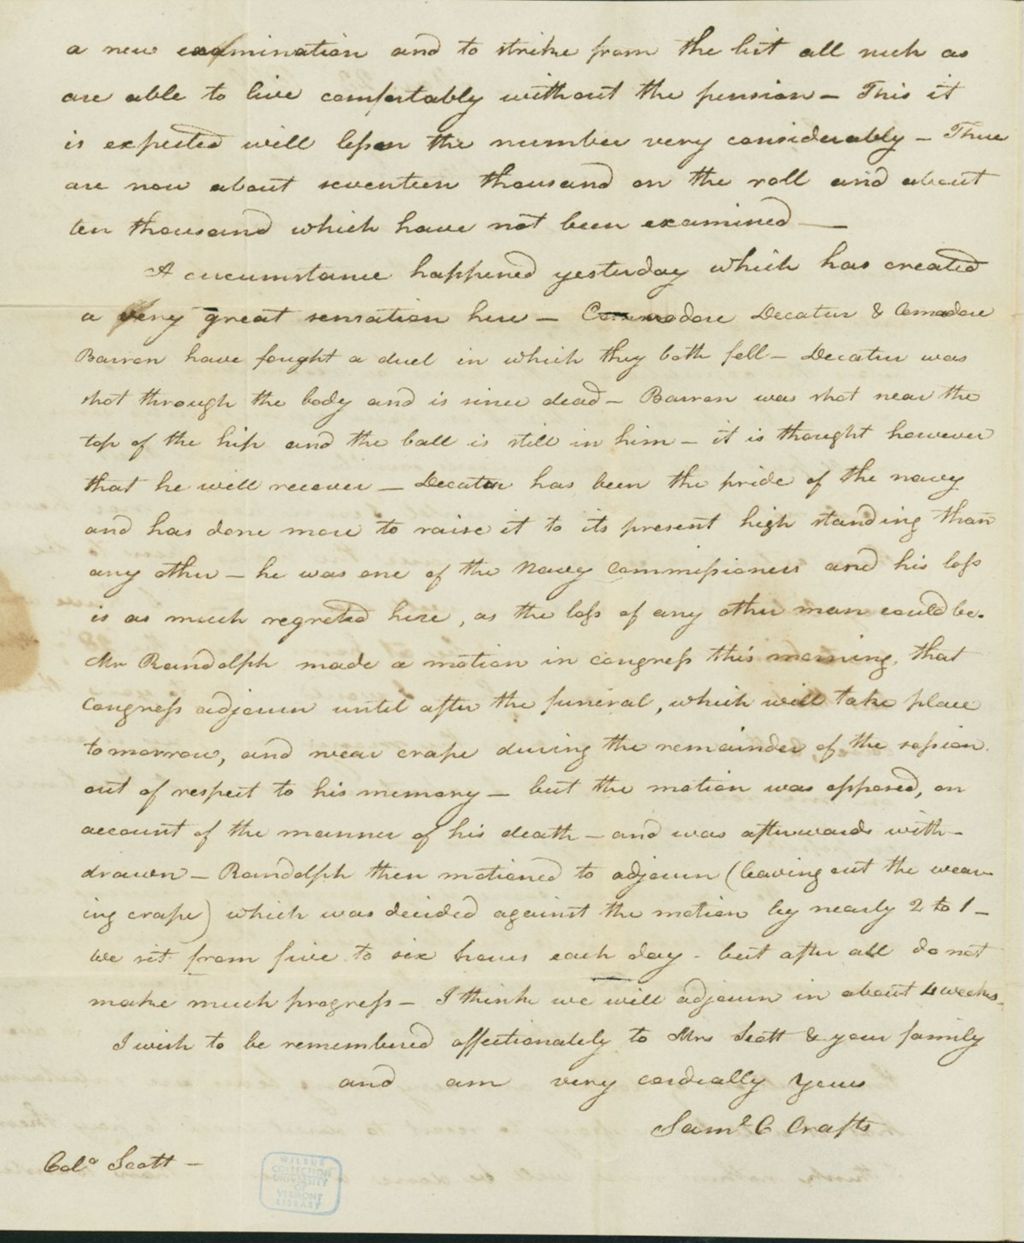 a new examination and to strike from the list all such as
are able to live comfortably without the pension — This it
is expected will lessen the number very considerably — There
are now about seventeen thousand on the roll and about
ten thousand which have not been examined —
A circumstance happened yesterday which has created
a very great sensation here — Commodore Decatur & Comodore
Barron have fought a duel in which they both fell — Decatur was
shot through the body and is since dead — Barron was shot near the
top of the hip and the ball is still in him — it is thought however
that he will recover — Decatur has been the pride of the navy
and has done more to raise it to its present high standing than
any other — he was one of the Navy Commissioners and his loss
is as much regreted here, as the loss of any other man could be.
Mr Randolph made a motion in congress this morning, that
Congress adjourn until after the funeral, which will take place
tomorrow, and wear crape during the remainder of the session.
out of respect to his memory — but the motion was opposed, on
account of the manner of his death — and was afterwards with-
drawn — Randolph then motioned to adjourn (leaving out the wear-
ing crape) which was decided against the motion by nearly 2 to 1 —
We sit from five to six hours each day - but after all do not
make much progress — I think we will adjourn in about 4 weeks.
I wish to be remembered affectionately to Mrs Scott & your family
and am very cordially yours
Saml C Crafts
Colo Scott —
WILBUR
COLLECTION
UNIVERSITY
OF
VERMONT
LIBRARY